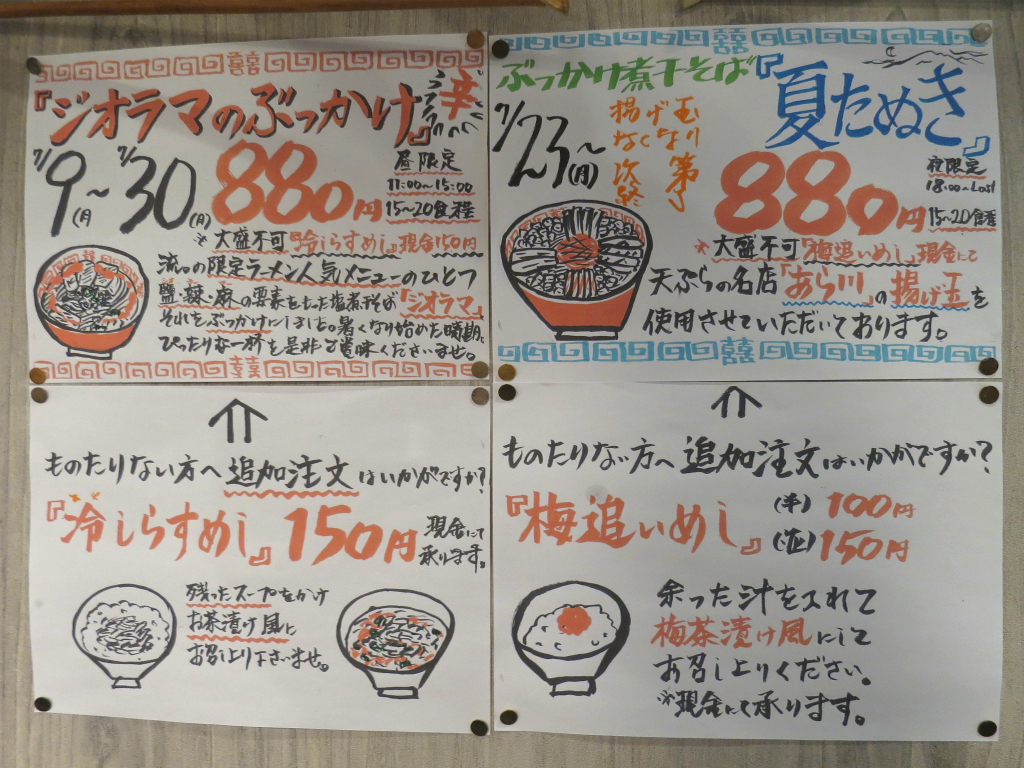 『ジオラマのぶっかけ』
辛
7/9(月)～7/30(月)
880円
昼限定
11:00～15:00
15～20食程
※大盛不可『冷しらすめし』現金150円
流。の限定ラーメン人気メニューのひとつ
の要素をもった塩煮干そば「ジオラマ」
それをぶっかけにしました。暑くなり始めた時期に
ぴったりな一杯を是非ご賞味くださいませ。
ぶっかけ煮干そば『夏たぬき』
7/23～(月)
揚げ玉
なくなり
次第
終了
880円
夜限定
18:00～Last
15～20食程
※大盛不可『梅追いめし』現金にて
天ぷらの名店「あら川」の揚げ玉を
使用させていただいております。
ものたりない方へ追加注文はいかがですか?
『冷しらすめし』150円
現金にて
承ります。
残ったスープをかけ
お茶漬け風に
お召し上り下さいませ。
ものたりない方へ追加注文はいかがですか?
『梅追いめし』
(半)100円
(並)150円
余った汁を入れて
梅茶漬け風にして
お召し上りください。
※現金にて承ります。